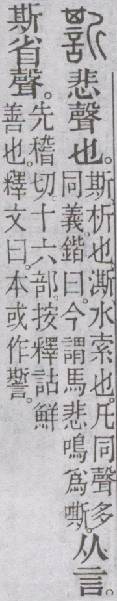 悲聲也。
斯、析也。澌、水索也。凡同聲多
同義。鍇曰。今謂馬悲鳴爲嘶。
从言。
斯省聲。
先稽切。十六部。按釋詁。鮮
善也。釋文曰。本或作